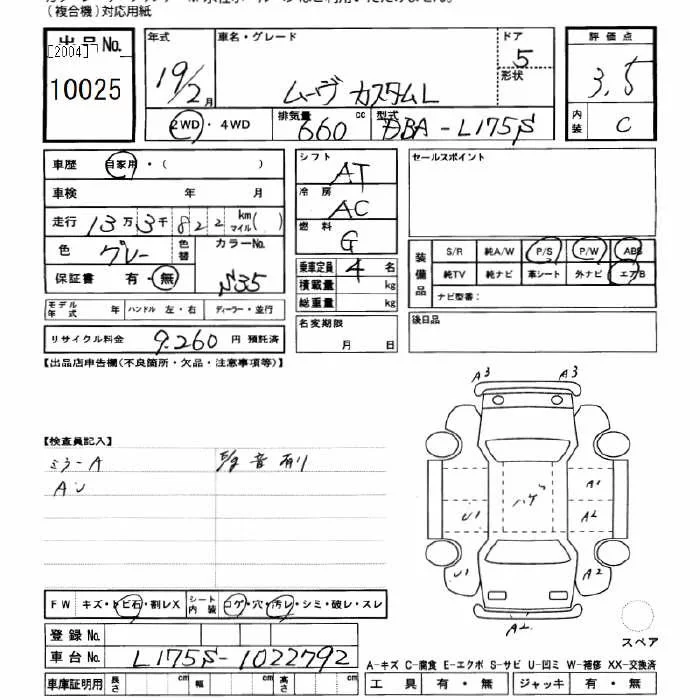 (複合機)対応用紙
出品No. [2004]
10025
年式 車名・グレード ドア 評価点
19/2月 ムーヴ カスタムL 5 3.5
形状
2WD・4WD 排気量 660 cc 型式 DBA-L175S 内装 C
車歴 自家用・( )
車検 年 月
走行 13万3千822 km マイル( )
色 グレー 色替 カラーNo. S35
保証書 有・無
モデル年式 年 ハンドル 左・右 ディーラー・並行
リサイクル料金 9,260 円 預託済
シフト AT
冷房 AC
燃料 G
乗車定員 4 名
積載量 kg
総重量 kg
名変期限
月 日
セールスポイント
装備品
S/R 純A/W P/S P/W ABS
純TV 純ナビ 革シート 外ナビ エアB
ナビ型番:
後日品
【出品店申告欄(不良箇所・欠品・注意事項等)】
【検査員記入】
ミラーA E/g 音 有り
AU
A3 A3
A1
U1 ハゲ A2
U1 A2
A2
スペア
FW キズ・トビ石・割レX シート内装 コゲ・穴・汚レ・シミ・破レ・スレ
登録No.
車台No. L175S-1022792
車庫証明用 長さ cm 幅 cm 高さ cm
A-キズ C-腐食 E-エクボ S-サビ U-凹ミ W-補修 XX-交換済
工具 有・無 ジャッキ 有・無